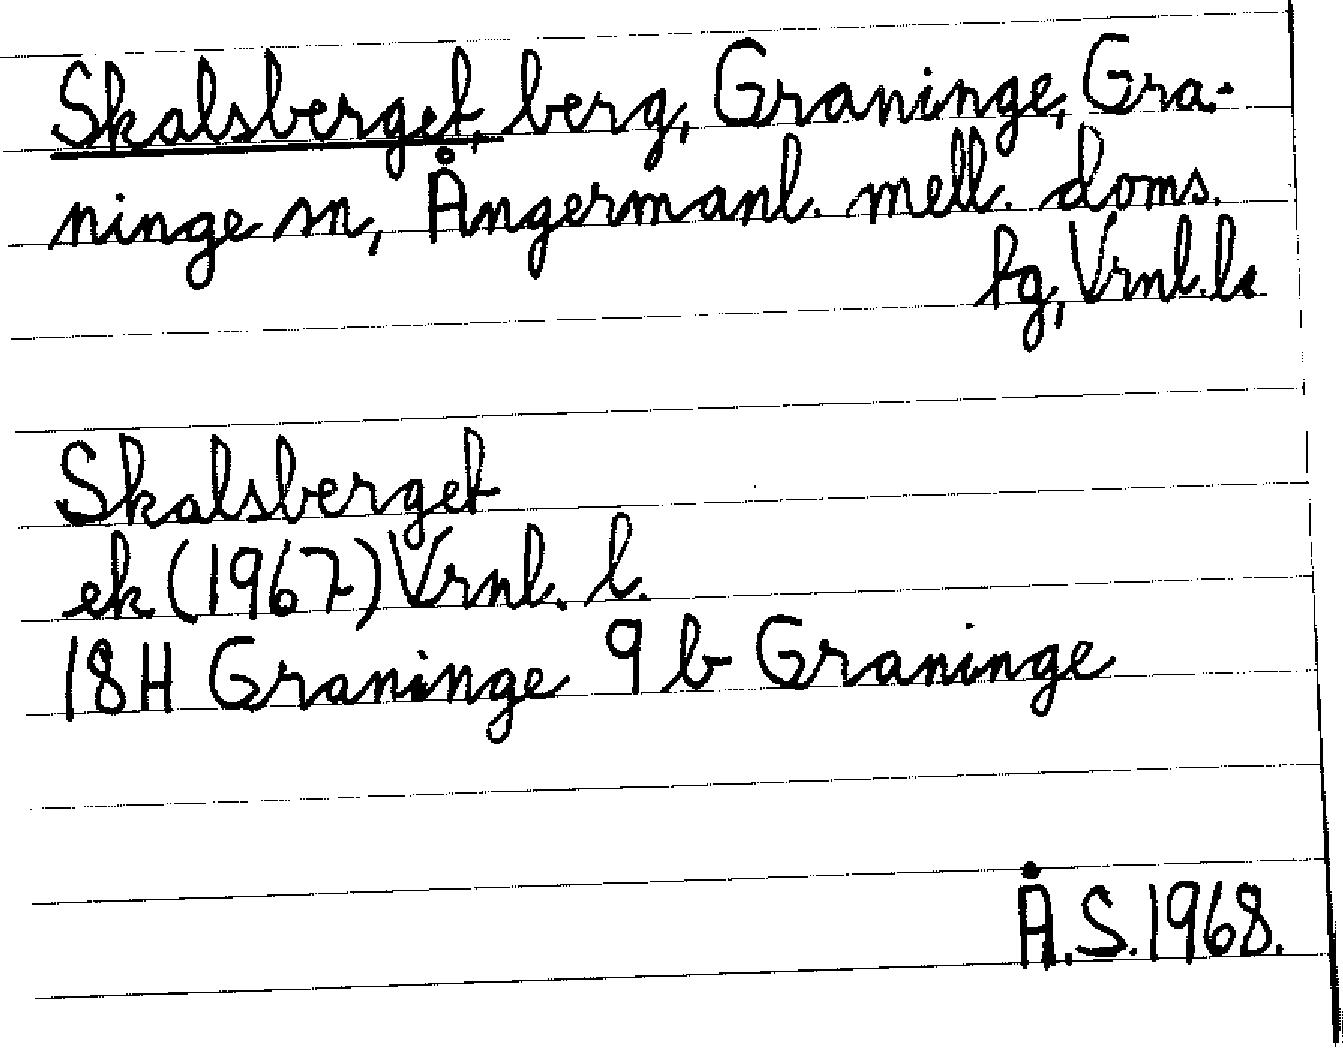 Skalsberget, berg, Graninge, Gra-
ninge sn, Ångermanl. mell. doms.
hg, Vrnl. l.
Skalsberget
ek (1967) Vrnl. l.
18H Graninge 9 b Graninge
Å.S. 1968.